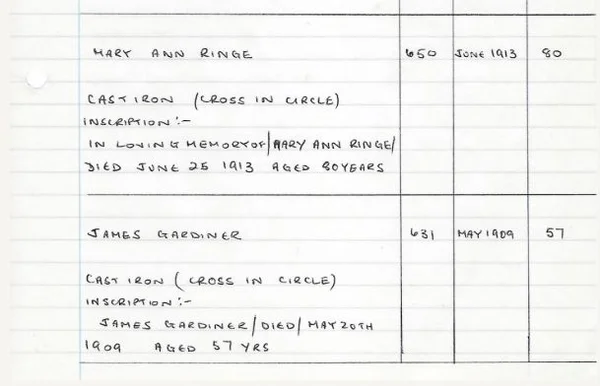 MARY ANN RINGE 650 JUNE 1913 80
CAST IRON (CROSS IN CIRCLE)
INSCRIPTION:-
IN LOVING MEMORY OF/MARY ANN RINGE/
DIED JUNE 25 1913 AGED 80YEARS
JAMES GARDINER 631 MAY 1909 57
CAST IRON (CROSS IN CIRCLE)
INSCRIPTION:-
JAMES GARDINER/DIED/MAY 20TH
1909 AGED 57 YRS